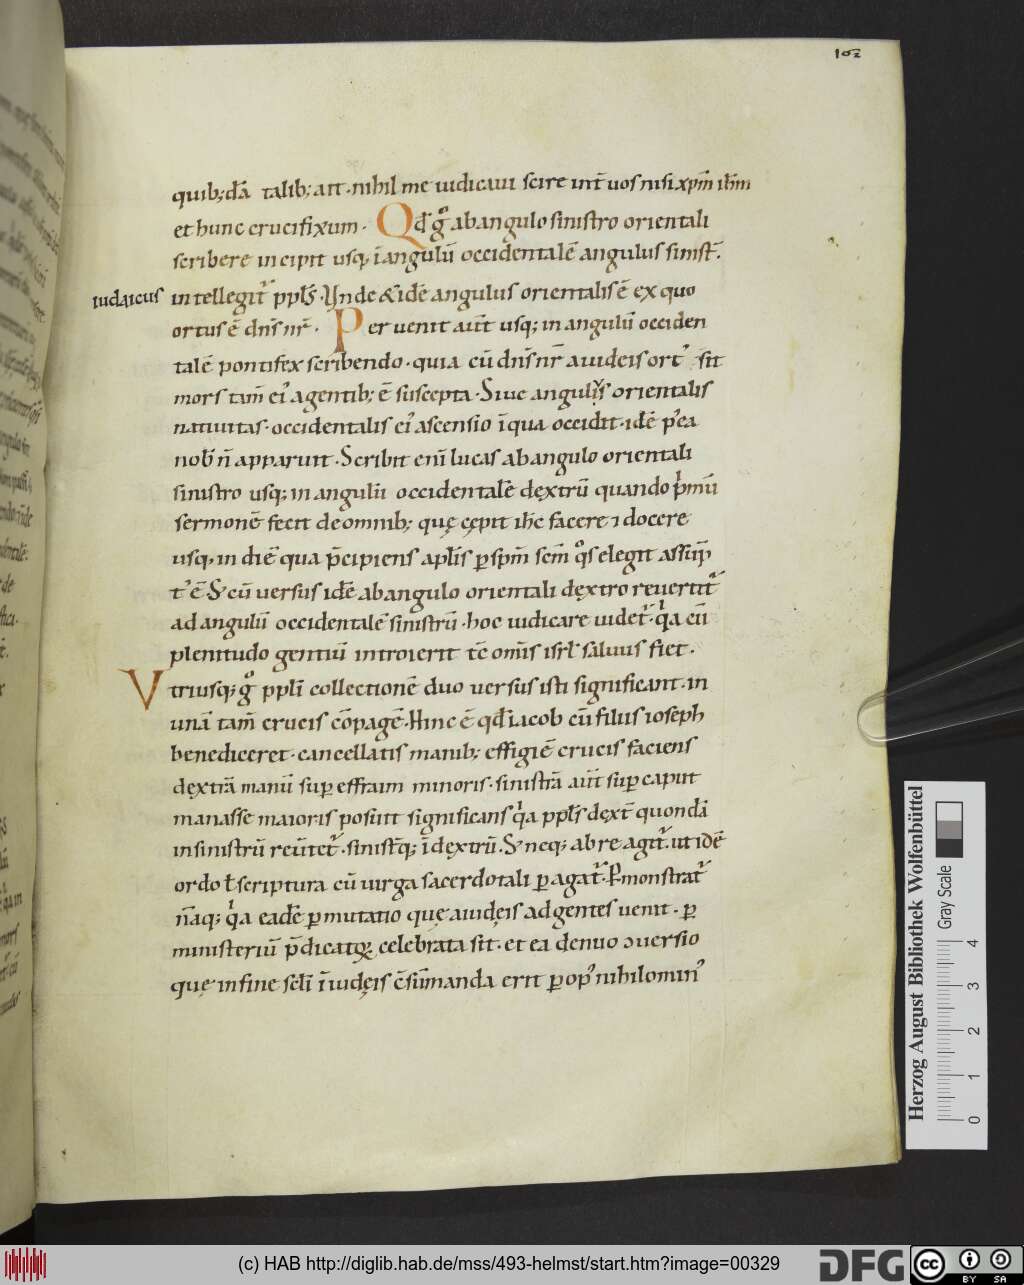 162
quib; dā talib; ait · nihil me iudicaui scire int̄ uos nisi xpm̄ ihm̄
et hunc crucifixum · Qd̄ g̊ ab angulo sinistro orientali
scribere incipit usq; ī angulū occidentalē angulus sinist̄.
iudaicus intellegit᷑ ppl̄s · Unde & idē angulus orientalis ē ex quo
ortus ē dn̄s nr̄ · Peruenit aūt usq; in angulū occiden
talē pontifex scribendo · quia cū dn̄s nr̄ a iudeis ort᷒ sit
mors tam̄ ei᷒ a gentib; ē suscepta · Siue angulus orientalis
natiuitas · occidentalis ei᷒ ascensio ī qua occidit · idē p᷒ ea
nob̄ n̄ apparuit · Scribit eni lucas ab angulo orientali
sinistro usq; in angulū occidentalē dęxtrū quando pͥmū
sermonē fecit de omnib; quę cępit ih̄c facere ⁊ docere
usq; in diē qua p̄cipiens apl̄is ꝑ spm̄ scm̄ qͦs elegit assūp
t᷒ ē & cū uersus idē ab angulo orientali dęxtro reuertit᷑
ad angulū occidentalē sinistrū · hoc iudicare uidet᷑ · qͥa cū
plenitudo gentiū introierit tē om̄is isrl̄ saluus fiet ·
Vtriusq; g̊ ppli collectionē duo uersus isti significant · in
unā tam̄ crucis cōpagē · Hinc ē qd̄ iacob cū filiis ioseph
benediceret · cancellatis manib; effigiē crucis faciens
dęxtrā manū suꝑ effraim minoris · sinistrā aūt suꝑ caput
manasse maioris posuit significans qͥa ppl̄s dęxt̄ quondā
in sinistrū reūtet᷑ · sinist̄q; ī dęxtrū · & neq; ab re agit᷑ · ut idē
ordo ł scriptura cū uirga sacerdotali ꝑagat᷑ · P̄monstrat᷑
n̄aq; qͥa eadē ꝑmutatio quę a iudęis ad gentes uenit · ꝑ
ministeriū p̄dicatoꝝ celebrata sit · et ea denuo ɔuersio
quę in fine scl̄i ī iudęis c̄sūmanda erit ꝑ op᷒ nihilomin᷒
Herzog August Bibliothek Wolfenbüttel
Gray Scale
0 1 2 3 4
(c) HAB http://diglib.hab.de/mss/493-helmst/start.htm?image=00329
DFG
cc BY SA